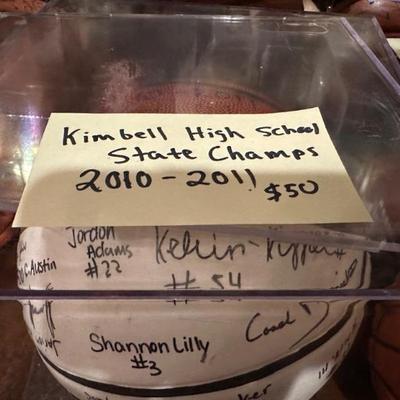 Kimbell High School
State Champs
2010-2011
$50
Jordon
Adams
#22
Austin
Kelvin
#54
Coach
Shannon Lilly
#3